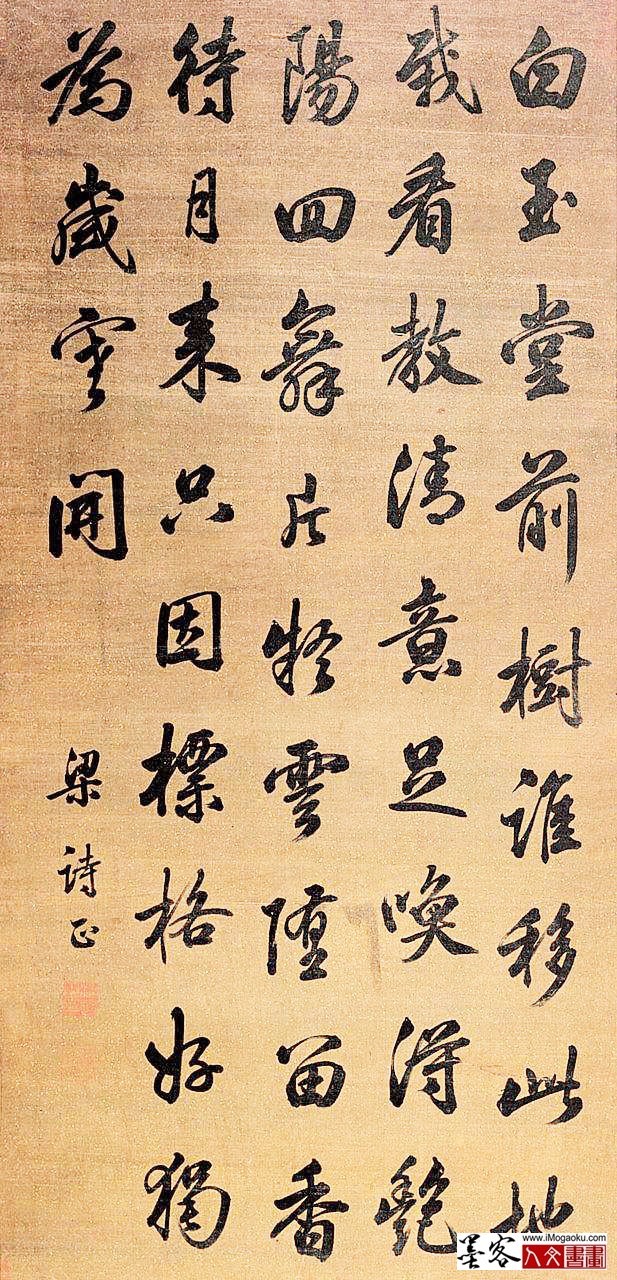 白玉堂前樹誰移此地
栽看教清意足喚得艷
陽回舞片疑雲墮留香
待月来只因標格好獨
為歲寒開
梁詩正
墨客
www.iMogaoku.com
人文書畫